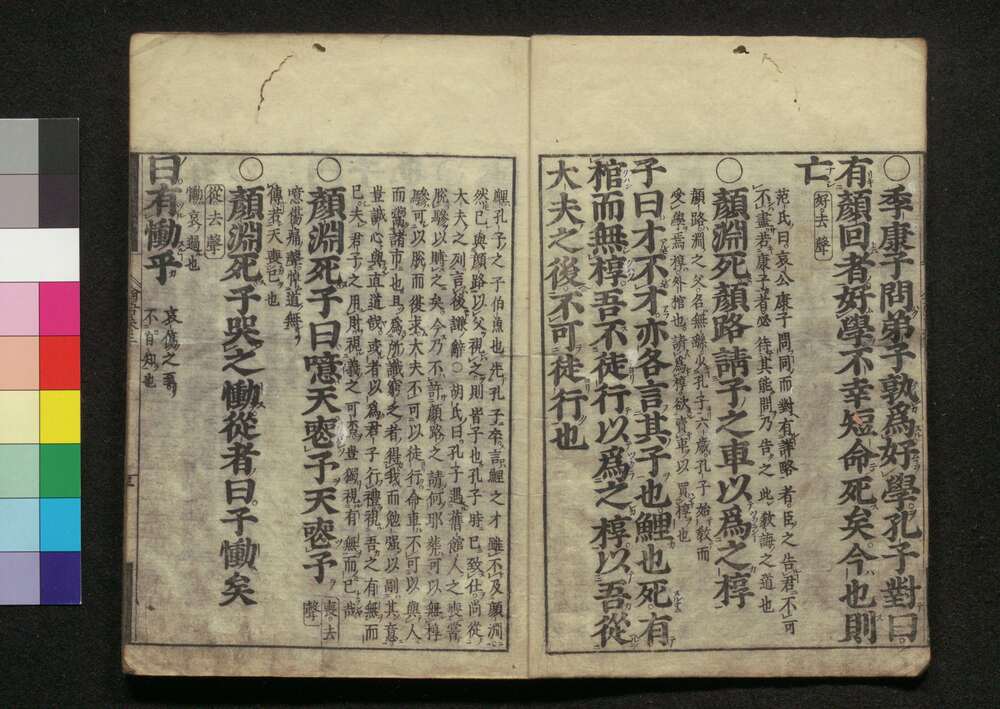 ○季康子問弟子孰爲好學孔子對曰
有顔回者好學不幸短命死矣今也則
亡 好去聲
范氏曰哀公康子問同而對有詳略者臣之告君不可
不盡若康子者必待其能問乃告之此敎誨之道也
○顔淵死顔路請子之車以爲之椁
顔路淵之父名無繇少孔子六歲孔子始敎而
受學焉椁外棺也請爲椁欲賣車以買椁也
子曰才不才亦各言其子也鯉也死有
棺而無椁吾不徒行以爲之椁以吾從
大夫之後不可徒行也
鯉孔子之子伯魚也先孔子卒言鯉之才雖不及顔淵
然己與顔路以父視之則皆子也孔子時已致仕尚從
大夫之列言後謙辭○胡氏曰孔子遇舊館人之喪嘗
脫驂以賻之矣今乃不許顔路之請何耶葬可以無椁
驂可以脫而復求大夫不可以徒行命車不可以與人
而鬻諸市也且爲所識窮乏者得我而勉强以副其意
豈誠心與直道哉或者以爲君子行禮視吾之有無而
已夫君子之用財視義之可否豈獨視有無而已哉
○顔淵死子曰噫天喪予天喪予 喪去聲
噫傷痛聲悼道無
傳若天喪己也
○顔淵死子哭之慟從者曰子慟矣
從去聲
慟哀過也
曰有慟乎 哀傷之至
不自知也